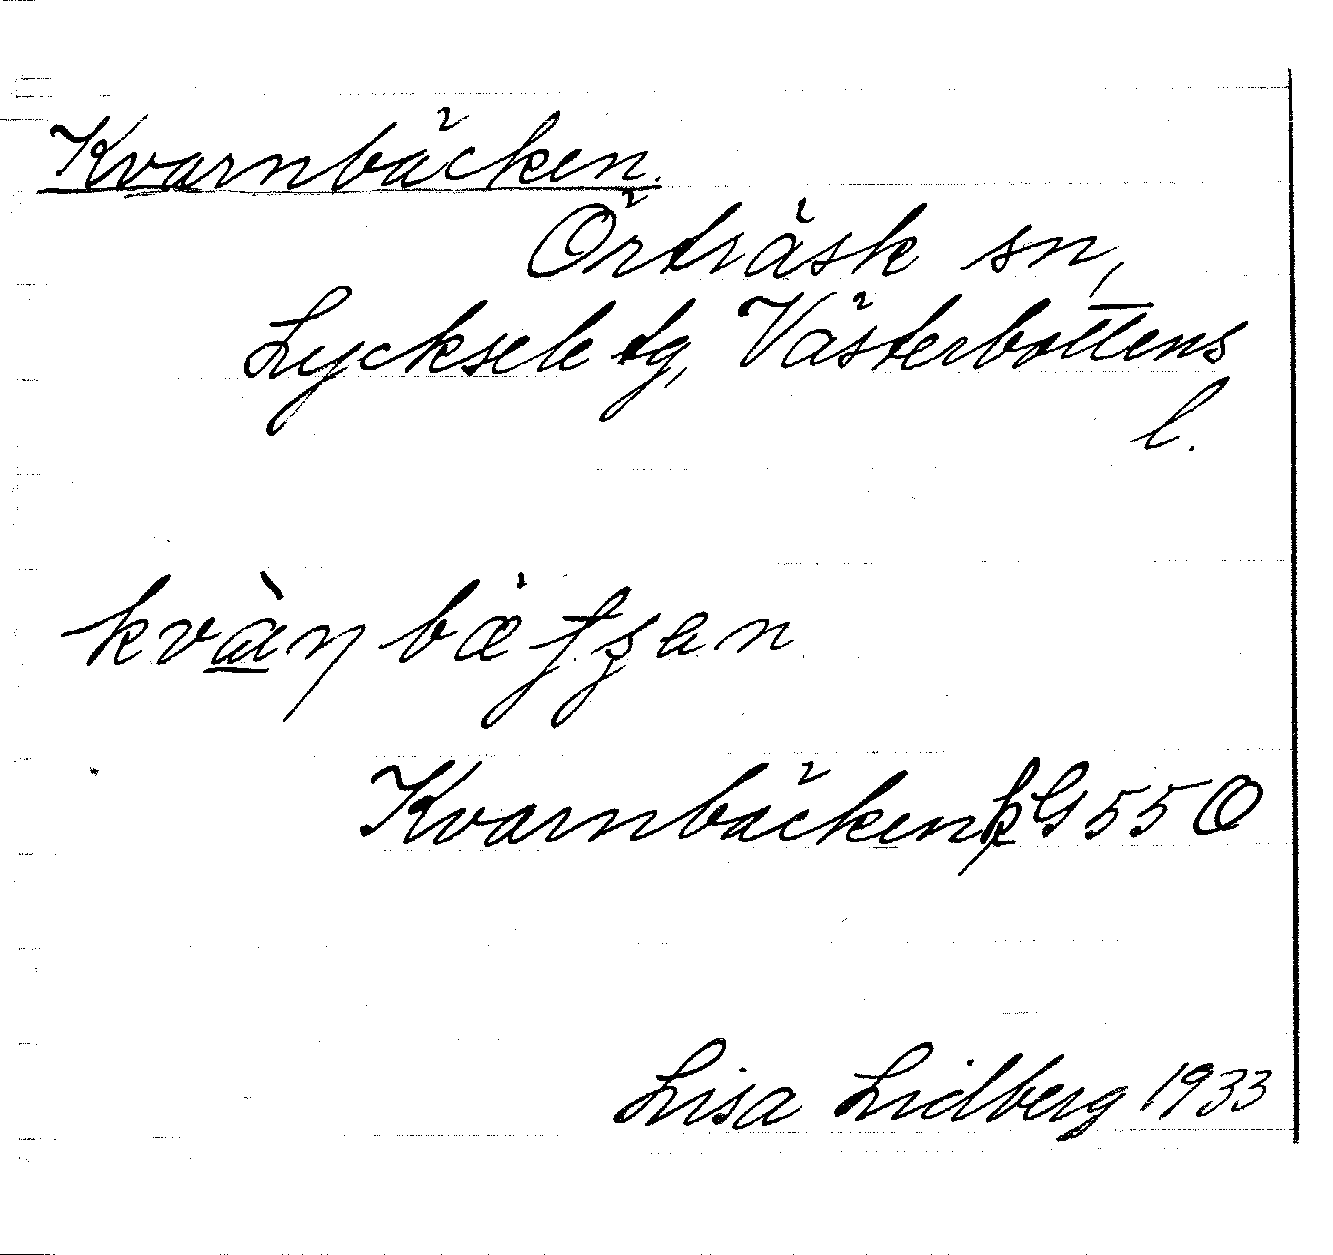 Kvarnbäcken.
Örträsk sn,
Lycksele tg, Västerbottens
l.
Kvarnbäcken G 55 O
Lisa Lidberg 1933